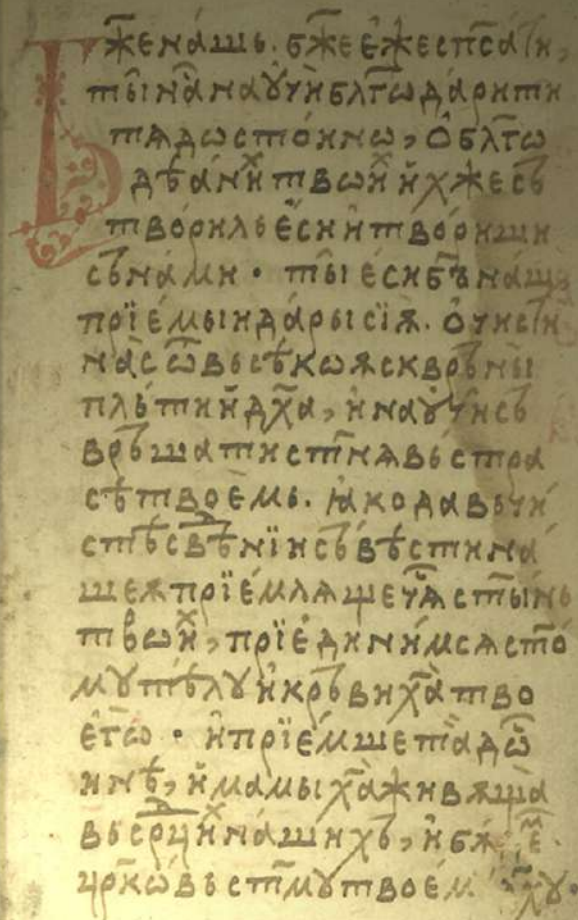 Бж҃е на́шь. бж҃е е́же спⷭ҇а́ти,
ты̀ на̀ наѹчѝ блгⷣтѡ дарити
тѧ досто́инѡ, ѡ҆ блгⷣтѡ
дѣа́нїи твои́х и҆хже съ
твори́ль є҆сѝ и҆ твори́ши
съ на́ми · ты̀ є҆сѝ б҃ь на́шь
прїе́мыи да́ры сїѧ̀. ѡ҆чи́сти
на́с ѿ вьсѣ́коѫ скврь́ны
пль́ти и҆ дх҃а, и҆ наѹчи съ
врь́шати ст҃инѧ вь стра
сѣ твое́мь. ꙗ҆ко да вь чи́
стѣ свѣ́дѣнїи съвѣ́сти на́
шеѫ прїе́млѧще чѧ́ ст҃ы́нь
твои́х, прїедини́мсѧ ст҃о́
мѹ тѣ́лѹ и҆ крь́ви хⷭ҇а тво
е҆гѡ̀ · и҆ прїе́мше та̀ до
инѣ, и҆мамы хⷭ҇а жи́вѫща
вь срⷣци́х на́шихь, и҆ бѫ́де
црк҃овь ст҃мѹ твоем дх҃ѹ.